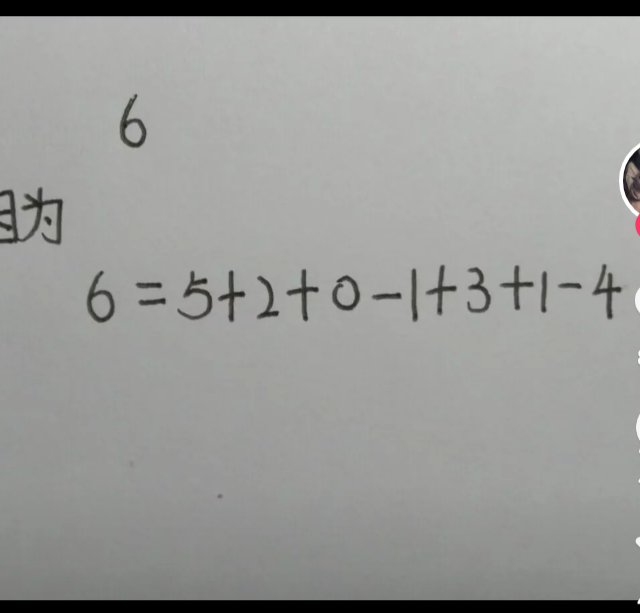 6
因为
6=5+2+0-1+3+1-4